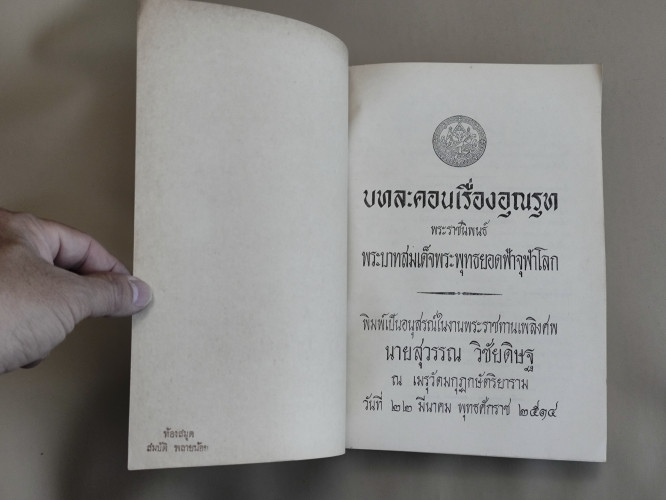 ห้องสมุด
สมบัติ พลายน้อย
บทละคอนเรื่องอุณรุท
พระราชนิพนธ์
พระบาทสมเด็จพระพุทธยอดฟ้าจุฬาโลก
พิมพ์เป็นอนุสรณ์ในงานพระราชทานเพลิงศพ
นายสุวรรณ วิชัยดิษฐ
ณ เมรุวัดมกุฏกษัตริยาราม
วันที่ ๒๒ มีนาคม พุทธศักราช ๒๕๑๔